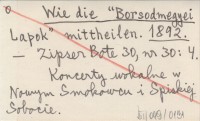 o Wie die "Borsodmegyei
Lapok" mittheilen. 1892.
— Zipser Bote 30, nr 30: 4.
Koncerty wokalne w
Nowym Smokowcu i Spiskiej
Sobocie.